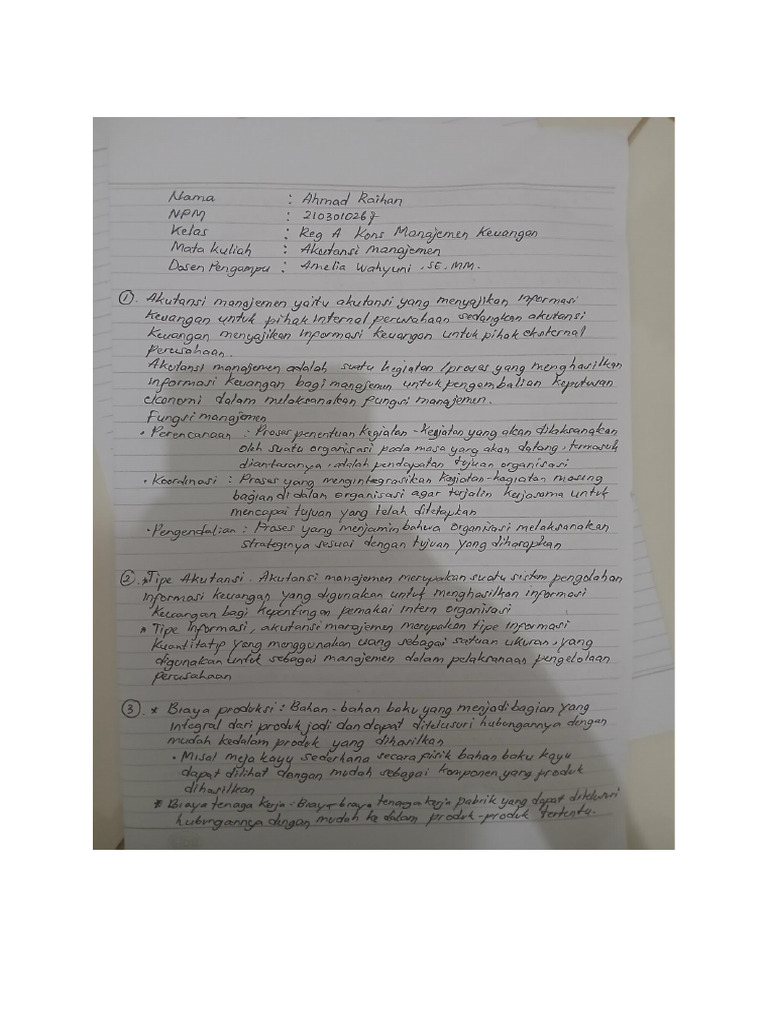 Nama : Ahmad Raihan
NPM : 2103010267
Kelas : Reg A Kons Manajemen Keuangan
Mata kuliah : Akutansi manajemen
Dosen Pengampu : Amelia Wahyuni, SE, MM.
① Akutansi manajemen yaitu akutansi yang menyajikan informasi
Keuangan untuk pihak internal perusahaan sedangkan akutansi
Keuangan menyajikan informasi keuangan untuk pihak eksternal
Perusahaan.
Akutansi manajemen adalah suatu kegiatan/proses yang menghasilkan
informasi keuangan bagi manajemen untuk pengambilan keputusan
ekonomi dalam melaksanakan fungsi manajemen.
Fungsi manajemen
• Perencanaan : Proses penentuan Kegiatan-Kegiatan yang akan dilaksanakan
oleh suatu organisasi pada masa yang akan datang, termasuk
diantaranya, adalah pendapatan tujuan organisasi
• Koordinasi : Proses yang mengintegrasikan kegiatan-kegiatan masing
bagian di dalam organisasi agar terjalin kerjasama untuk
mencapai tujuan yang telah ditetapkan
• Pengendalian : Proses yang menjamin bahwa organisasi melaksanakan
strateginya sesuai dengan tujuan yang diharapkan
② * Tipe Akutansi. Akutansi manajemen merupakan suatu sistem pengolahan
informasi keuangan yang digunakan untuk menghasilkan informasi
Keuangan bagi kepentingan pemakai intern organisasi
* Tipe Informasi, akutansi manajemen merupakan tipe informasi
Kuantitatip yang menggunakan uang sebagai satuan ukuran, yang
digunakan untuk sebagai manajemen dalam pelaksanaan pengelolaan
perusahaan
③ * Biaya produksi : Bahan-bahan baku yang menjadi bagian yang
integral dari produk jadi dan dapat ditelusuri hubungannya dengan
mudah kedalam produk yang dihasilkan
• Misal meja kayu sederhana secara fisik bahan baku kayu
dapat dilihat dengan mudah sebagai komponen yang produk
dihasilkan
* Biaya tenaga kerja. Biaya-biaya tenaga kerja pabrik yang dapat ditelusuri
hubungannya dengan mudah ke dalam produk-produk tertentu.